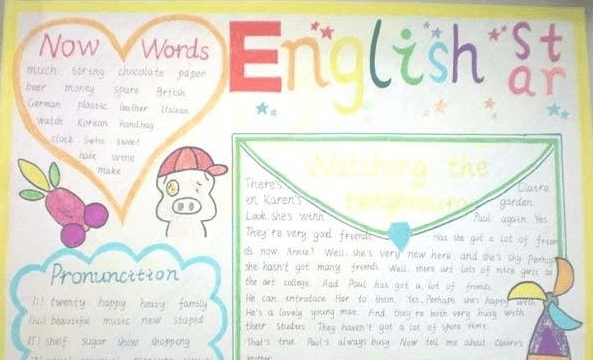 English Star
Now Words
much string chocolate paper
beer money spare British
German plastic leather Italian
watch Korean handbag
clock Swiss sweet
hate wine
make
Pronuncition
twenty happy heavy family
beautiful music new stupid
shelf sugar show shopping
Watching the
neighbours
There's Claire
in Karen's garden.
Look, she's with Paul again. Yes.
They're very good friends. Has she got a lot of frien
ds now, Annie? Well, she's very new here, and she's shy. Perhaps
she hasn't got many friends. Well, there are lots of nice girls at
the art college. And Paul has got a lot of friends.
He can introduce Her to them. Yes, Perhaps she's happy with
He's a lovely young man. And they're both very busy with
their studies. They haven't got a lot of spare time.
That's true. Paul's always busy. Now tell me about
mother.